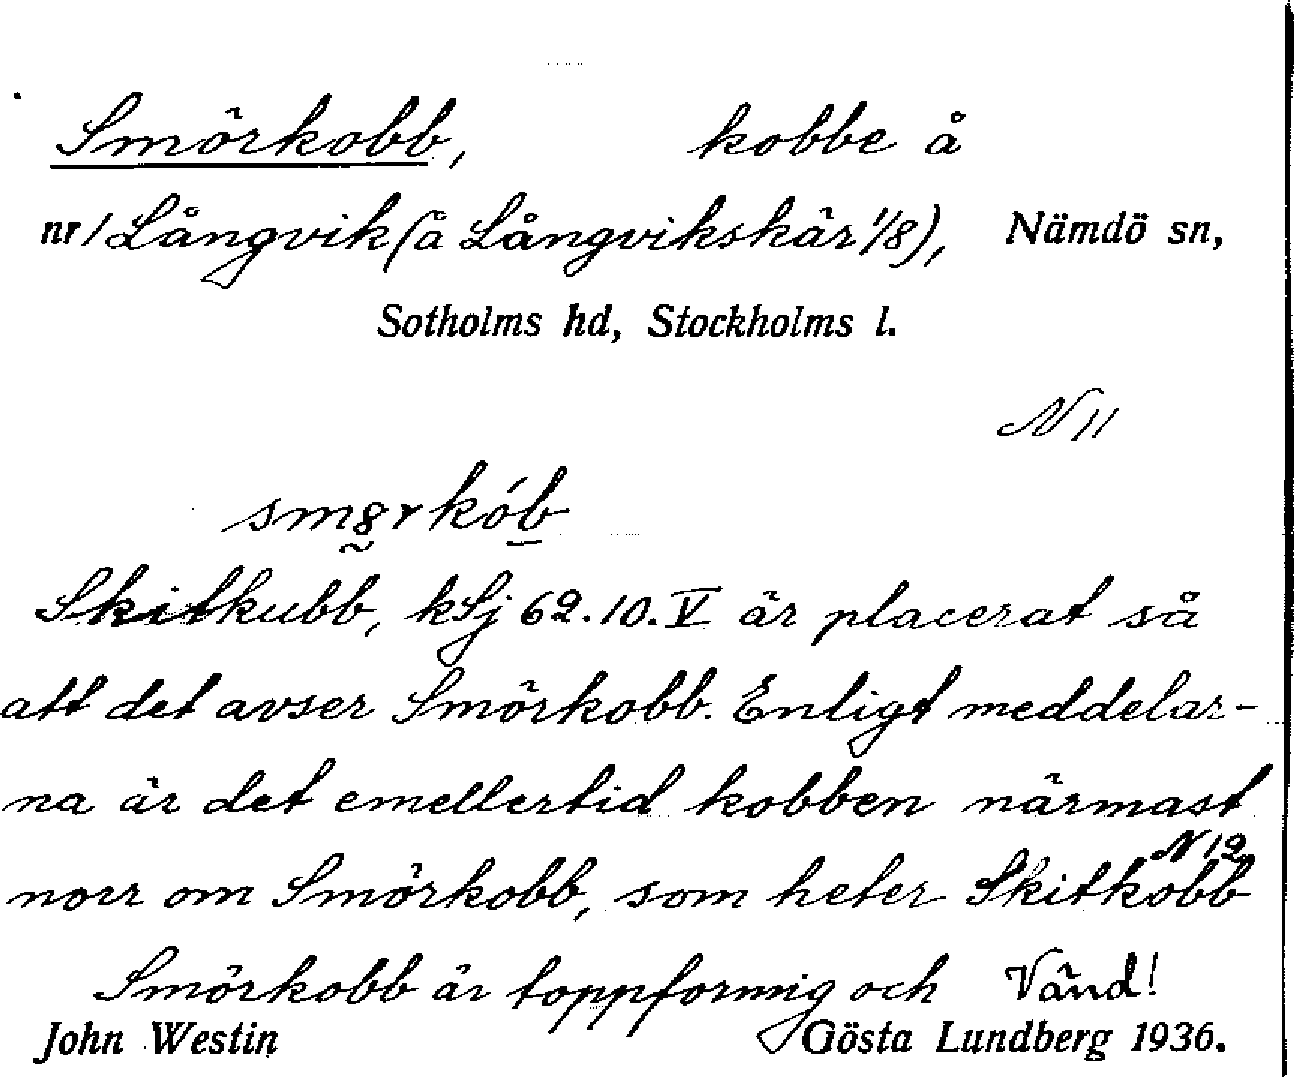 Smörkobb, kobbe å
nr 1 Långvik (å Långvikskär 1/8), Nämdö sn,
Sotholms hd, Stockholms l.
N 11
Skitkubb, kSj 62.10.V är placerat så
att det avser Smörkobb. Enligt meddelar-
na är det emellertid kobben närmast
N 12
norr om Smörkobb, som heter Skitkobb
Smörkobb är toppformig och Vänd!
John Westin Gösta Lundberg 1936.